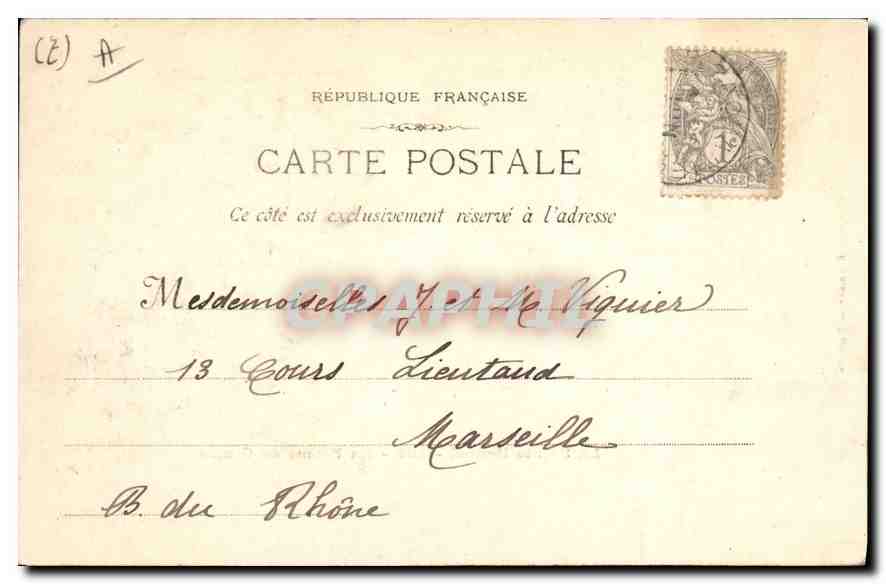 (Z) A
RÉPUBLIQUE FRANÇAISE
CARTE POSTALE
Ce côté est exclusivement réservé à l'adresse
1c
POSTES
CPAPHIL
Mesdemoiselles J. et M. Viguier
13 Cours Lieutaud
Marseille
B. du Rhône